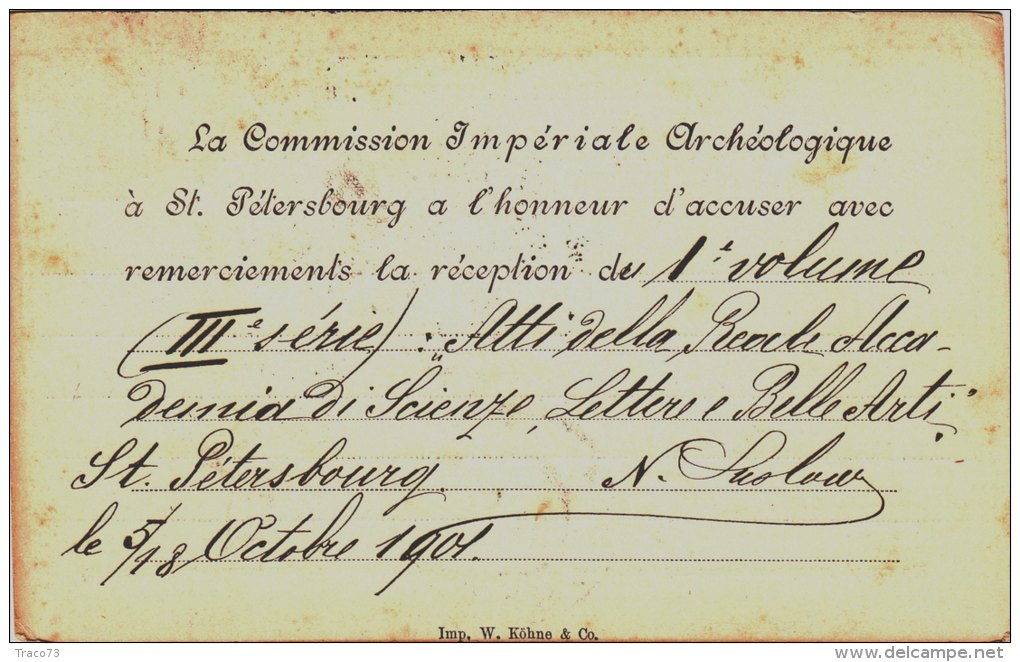 La Commission Impériale Archéologique
à St. Pétersbourg a l'honneur d'accuser avec
remerciements la réception du 1e volume
(IIIe série) : „Atti della Reale Acca-
demia di Scienze, Lettere e Belle Arti“.
St. Pétersbourg. N.
le 5/18 Octobre 1901.
Imp. W. Köhne & Co.
Traco73
www.delcampe.net